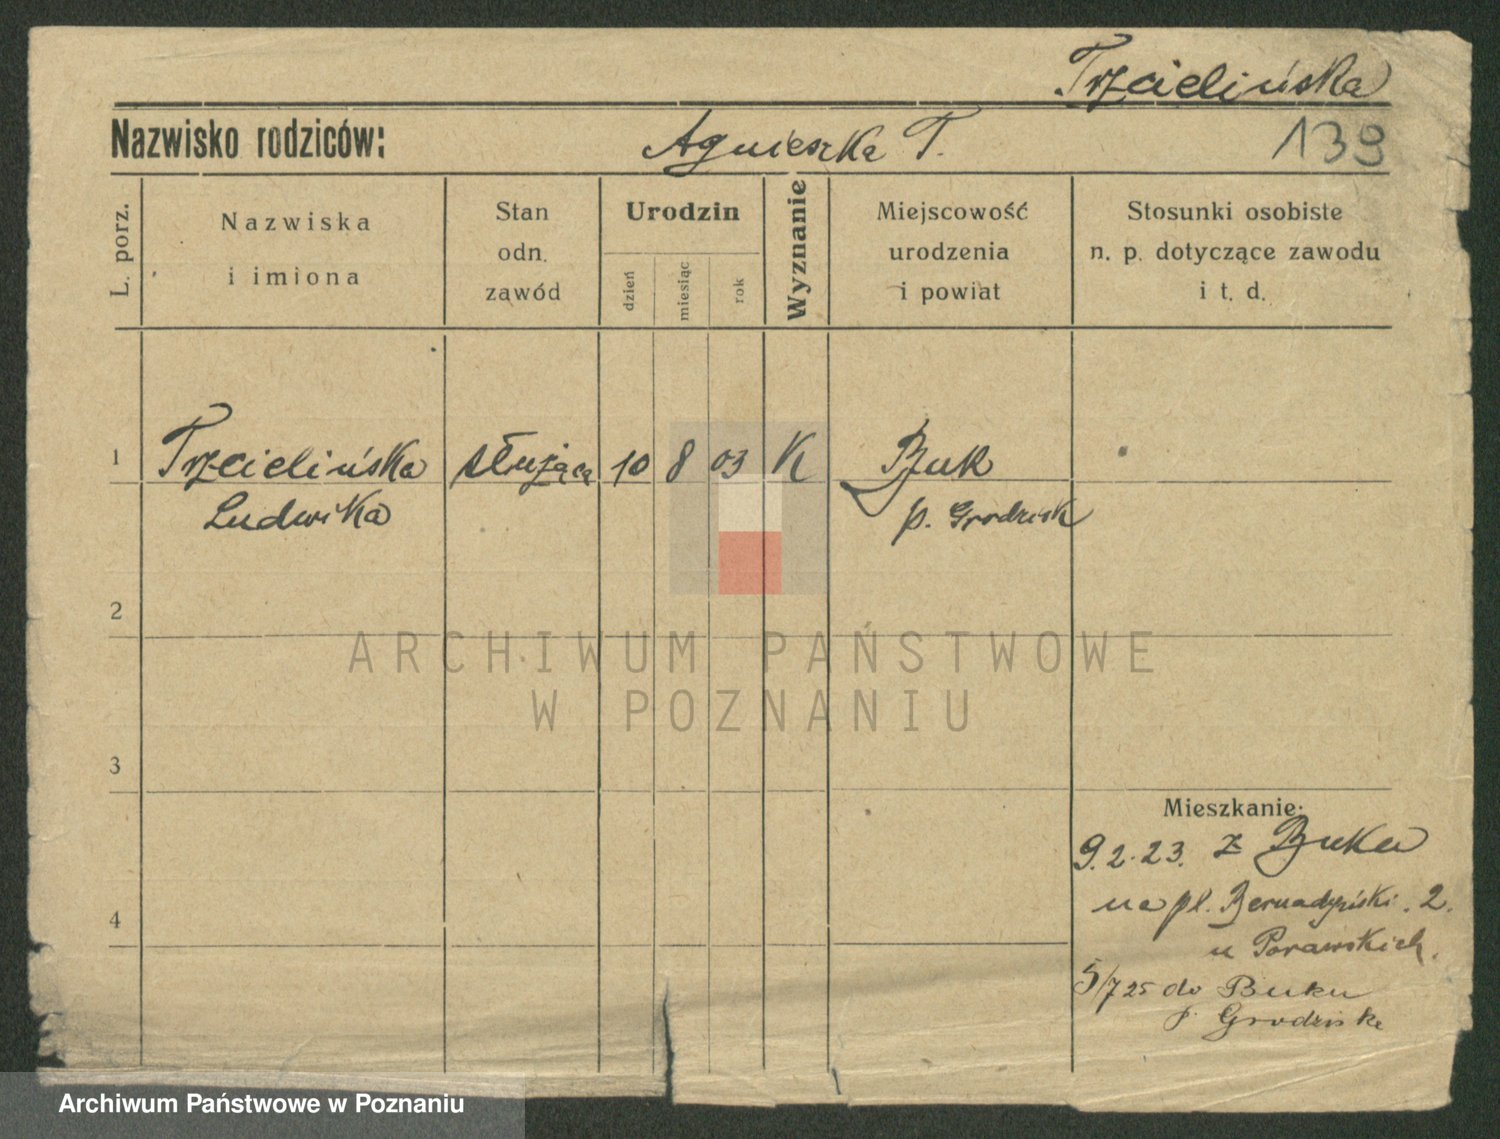 Trzcielińska
Nazwisko rodziców: Agnieszka T. 139
L. porz.
Nazwiska
i imiona
Stan
odn.
zawód
Urodzin
dzień
miesiąc
rok
Wyznanie
Miejscowość
urodzenia
i powiat
Stosunki osobiste
n. p. dotyczące zawodu
i t. d.
1 Trzcielińska służąca 10 8 03 K Buk
Ludwika p. Grodzisk
2
ARCHIWUM PAŃSTWOWE
W POZNANIU
3
Mieszkanie:
9.2.23. z Buku
na pl. Bernadyński. 2.
4
u Porawskich.
5/7 25 do Buku
p. Grodzisk
Archiwum Państwowe w Poznaniu